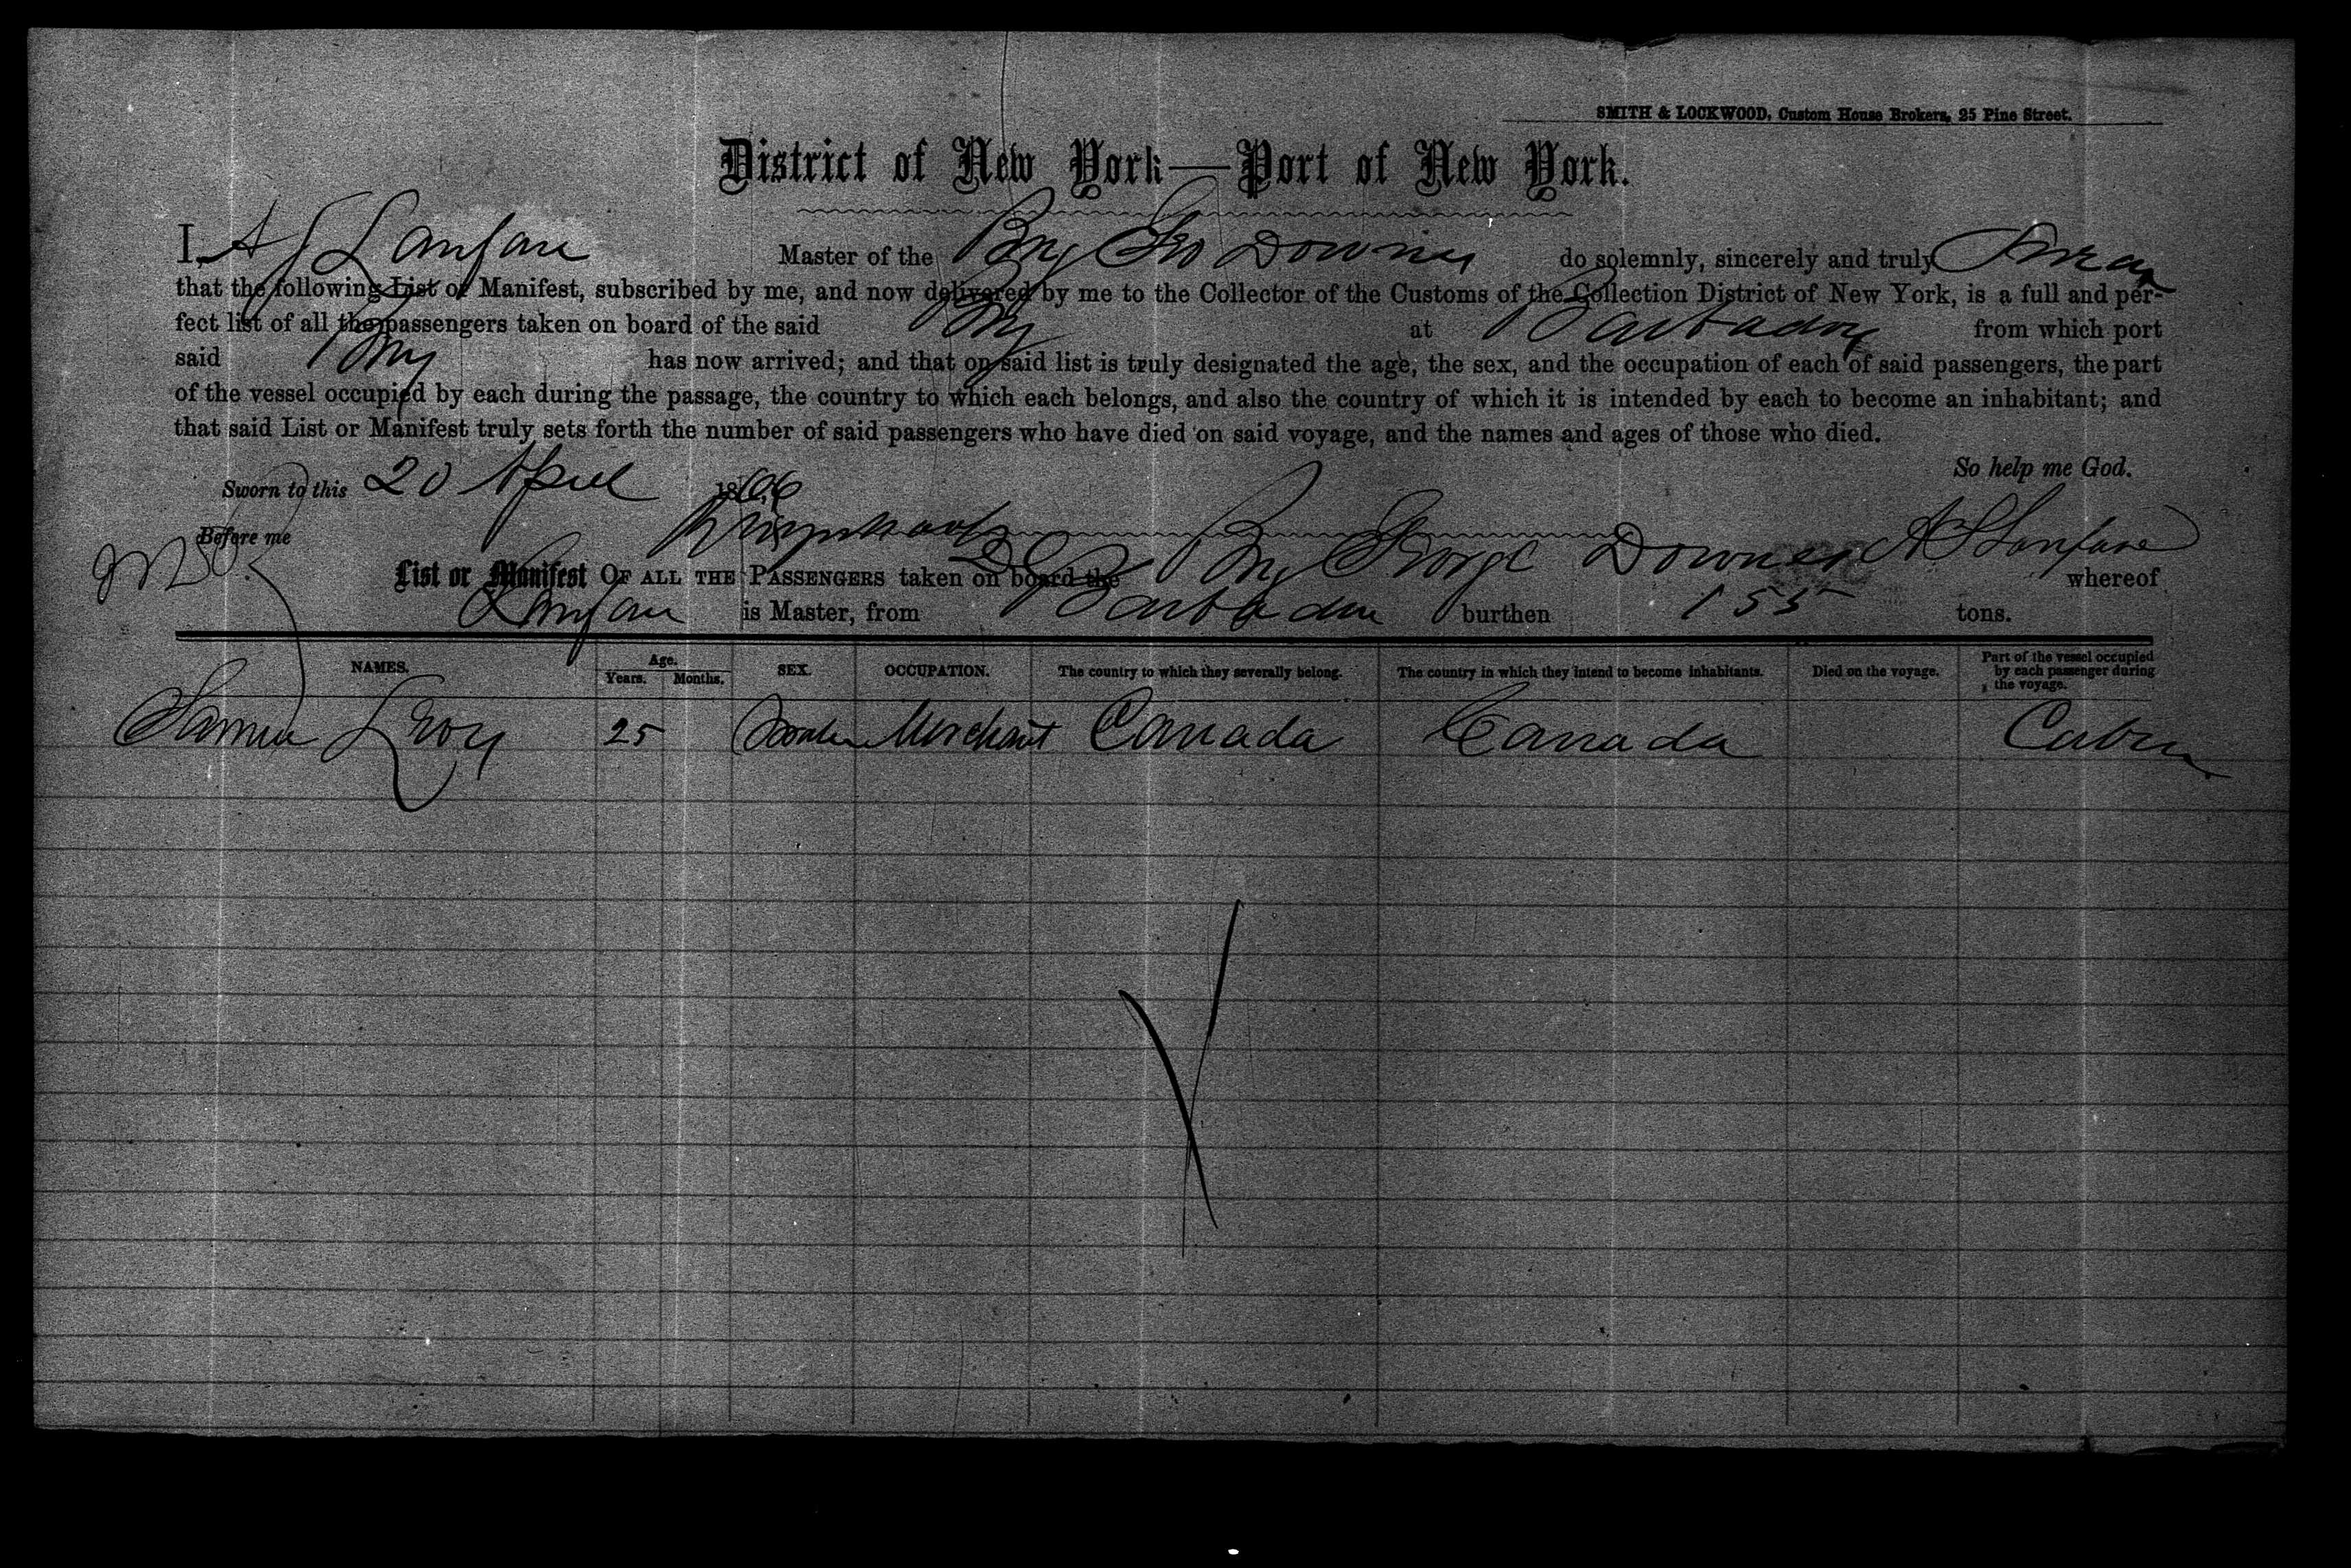 SMITH & LOCKWOOD, Custom House Brokers, 25 Pine Street.
District of New York—Port of New York.
I, A J Lanfare Master of the Brig Geo Downes do solemnly, sincerely and truly Swear
that the following List or Manifest, subscribed by me, and now delivered by me to the Collector of the Customs of the Collection District of New York, is a full and per-
fect list of all the passengers taken on board of the said Brig at Barbadoes from which port
said Brig has now arrived; and that on said list is truly designated the age, the sex, and the occupation of each of said passengers, the part
of the vessel occupied by each during the passage, the country to which each belongs, and also the country of which it is intended by each to become an inhabitant; and
that said List or Manifest truly sets forth the number of said passengers who have died on said voyage, and the names and ages of those who died.
So help me God.
Sworn to this 20 April 1866
Before me A J Lanfare
List or Manifest OF ALL THE PASSENGERS taken on board the Brig George Downes whereof
Lanfare is Master, from Barbadoes burthen 155 tons.
NAMES. Age. Years. Months. SEX. OCCUPATION. The country to which they severally belong. The country in which they intend to become inhabitants. Died on the voyage. Part of the vessel occupied by each passenger during the voyage.
Leroy 25 Merchant Canada Canada Cabin